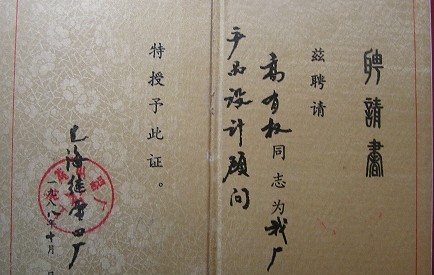 聘請書
兹聘请
高有权同志为我厂
产品设计顾问
特授予此证。
上海四厂
一九八八年十月 日